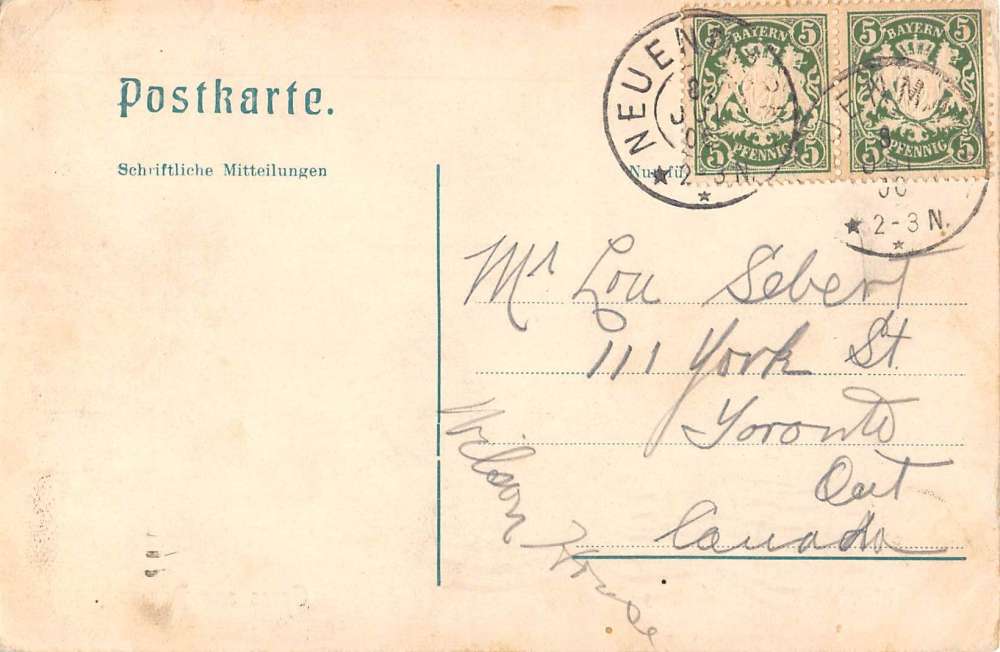 Postkarte.
Schriftliche Mitteilungen
Nur für
5 BAYERN 5
5 PFENNIG 5
5 BAYERN 5
5 PFENNIG 5
NEUEN
8
2-3 N.
8
2-3 N.
Mr Lou Sebert
111 York St.
Toronto
Ont
Canada
Wilson House